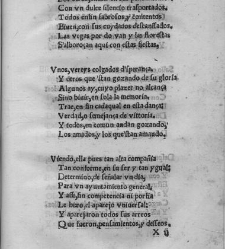 Con vn dulce silencio trasportados,
Todos enfin sabrosos y contentos
Biuen, con sus cuydados descansados,
Las vegas por do van y las florestas
S'alboroçan aqui con estas fiestas.
Vnos, vereys colgados d'sperança,
Y otros que 'stan gozando de su gloria
Algunos ay, cuyo plazer no alcança
Sino biuir, en sola la memoria.
Trae, en fin cadaqual en esta dança
Verdad, o semejança de vittoria.
Y todos, en comun andan gozando,
Los amados, y los que 'stan amando.
Viendo, ella pues tan alta compañia
Tan conforme, en su ser y tan ygual;
Determino, de señalar vn dia,
Para vn ayuntamiento general,
Y assi, sin competencia ni porfia
Se hizo el aparejo vniuersal:
Y aparejaron todos sus arreos
Que fueron, pensamientos, y desseos.
X ij